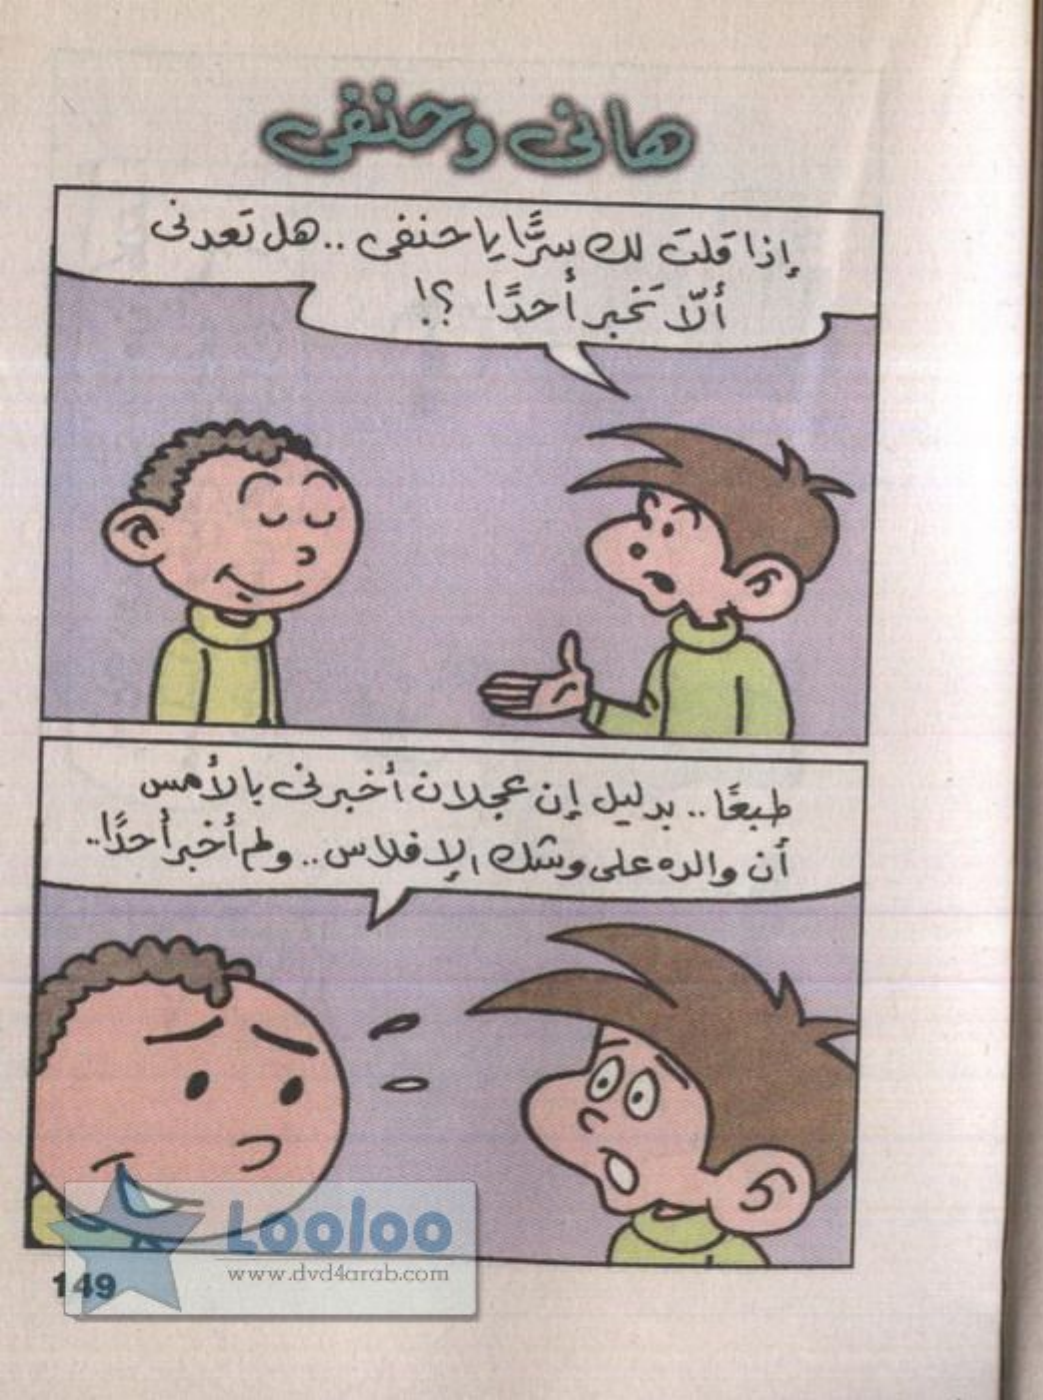 هانى وحنفى
إذا قلتَ لك سرًّا يا حنفى .. هل تَعدنى
ألّا تَخبر أحدًا ؟!
طبعًا .. بدليل إن عجلان أخبرنى بالأمس
أن والده على وشك الإفلاس .. ولم أخبر أحدًا ..
Looloo
www.dvd4arab.com
149